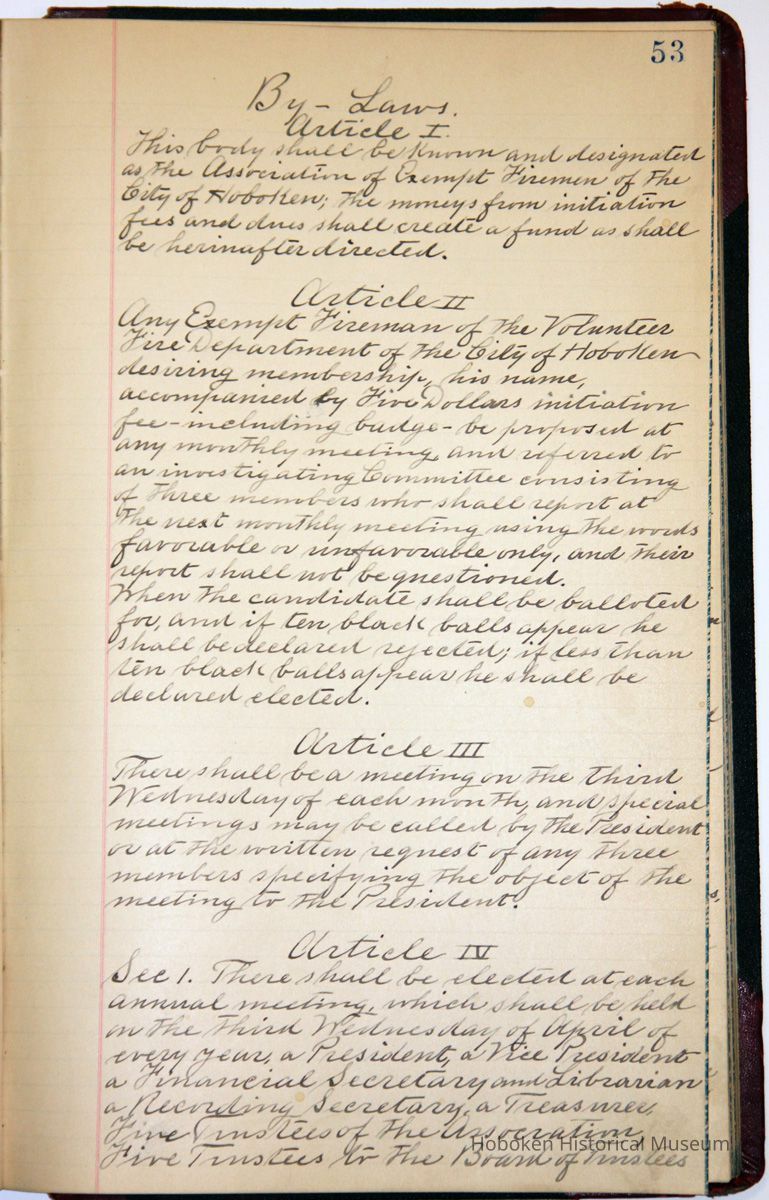 53
By-Laws.
Article I.
This body shall be known and designated
as the Association of Exempt Firemen of the
City of Hoboken; the moneys from initiation
fees and dues shall create a fund as shall
be herinafter directed.
Article II
Any Exempt Fireman of the Volunteer
Fire Department of the City of Hoboken
desiring membership, his name,
accompanied by Five Dollars initiation
fee - including badge - be proposed at
any monthly meeting, and referred to
an investigating Committee consisting
of three members who shall report at
the next monthly meeting using the words
favorable or unfavorable only, and their
report shall not be questioned.
When the candidate shall be balloted
for, and if ten black balls appear he
shall be declared rejected; if less than
ten black balls appear he shall be
declared elected.
Article III
There shall be a meeting on the third
Wednesday of each month, and special
meetings may be called by the President
or at the written request of any three
members specifying the object of the
meeting to the President.
Article IV
Sec 1. There shall be elected at each
annual meeting, which shall be held
on the third Wednesday of April of
every year, a President, a Vice President
a Financial Secretary and Librarian
a Recording Secretary, a Treasurer,
Five Trustees of the Association,
Five Trustees to the Board of Trustees
Hoboken Historical Museum